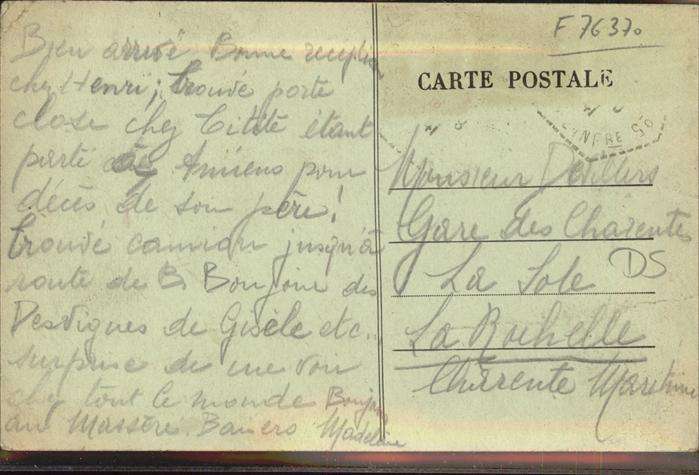 Bien arrivé Bonne réception
chez Henri; trouvé porte
close chez Titité étant
parti à Amiens pour
décès de son père!
trouvé camion jusqu'à
route de B. Bonjour des
Desvignes de Gisèle etc..
surprise de me voir
chez tout le monde Bonjour
aux Massére. Baisers Madeleine
F 76370
CARTE POSTALE
INFRE
Monsieur Devillers
Gare des Charentes
La Sole
DS
La Rochelle
Charente Maritime